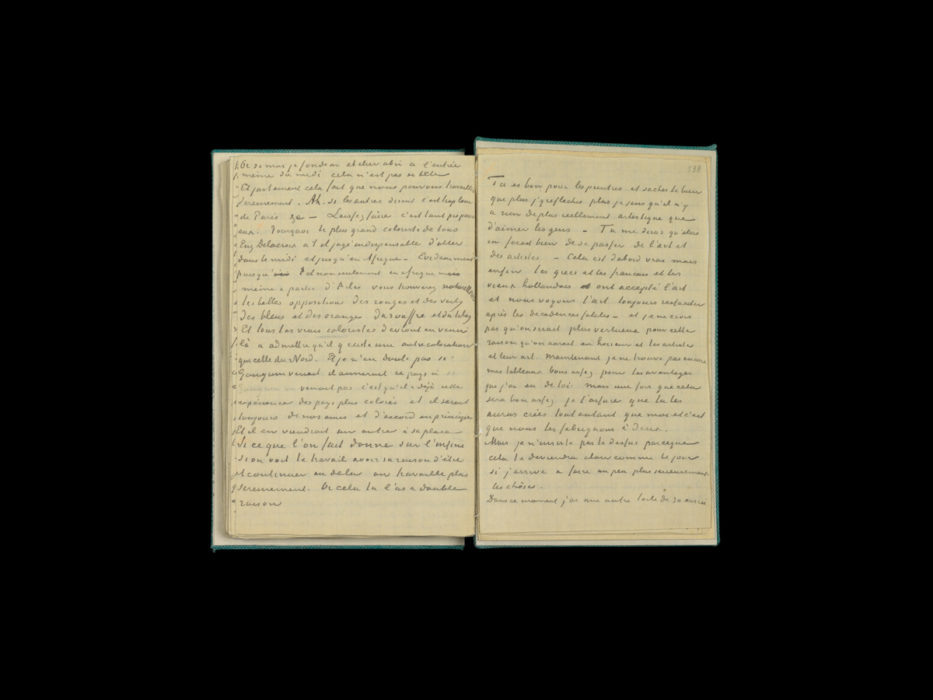 Or si moi je fonde un atelier abri à l'entrée
même du midi cela n'est pas si bête.
Et justement cela fait que nous pouvons travailler
sereinement. Ah si les autres disent c'est trop loin
de Paris &c — Laissez faire c'est tant pis pour
eux. Pourquoi le plus grand coloriste de tous
Eug Delacroix a t'il jugé indispensable d'aller
dans le midi et jusqu'en Afrique — Evidemment
puisqu' Et non seulement en afrique mais
même à partir d'Arles vous trouverez naturellement
les belles oppositions des rouges et des verts
des bleus et des oranges du souffre et du lilas
Et tous les vrais coloristes devront en venir
là à admettre qu'il existe une autre coloration
que celle du Nord. Et je n'en doute pas si
Gauguin venait il aimerait ce pays-ci
Gauguin ne venait pas c'est qu'il a déjà cette
expérience des pays plus colorés et il serait
toujours de nos amis et d'accord en principe
Et il en viendrait un autre à sa place
Si ce que l'on fait donne sur l'infini
si on voit le travail avoir sa raison d'être
et continuer au delà on travaille plus
sereinement. Or cela tu l'as à double
raison
538
Tu es bon pour les peintres et saches le bien
que plus j'y réfléchis plus je sens qu'il n'y
a rien de plus réellement artistique que
d'aimer les gens — Tu me diras qu'alors
on ferait bien de se passer de l'art et
des artistes — Cela est d'abord vrai mais
enfin les grecs et les francais et les
vieux hollandais ont accepté l'art
et nous voyons l'art toujours ressusciter
après les décadences fatales — et je ne crois
pas qu'on serait plus vertueux pour cette
raison qu'on aurait en horreur et les artistes
et leur art. maintenant je ne trouve pas encore
mes tableaux bons assez pour les avantages
que j'ai eu de toi. Mais une fois que cela
sera bon assez je t'assure que tu les
auras créés tout autant que moi et c'est
que nous les fabriquons à deux.
Mais je n'insiste pas là dessus parceque
cela te deviendra clair comme le jour
si j'arrive à faire un peu plus sérieusement
les choses.
Dans ce moment j'ai une autre toile de 30 carrée